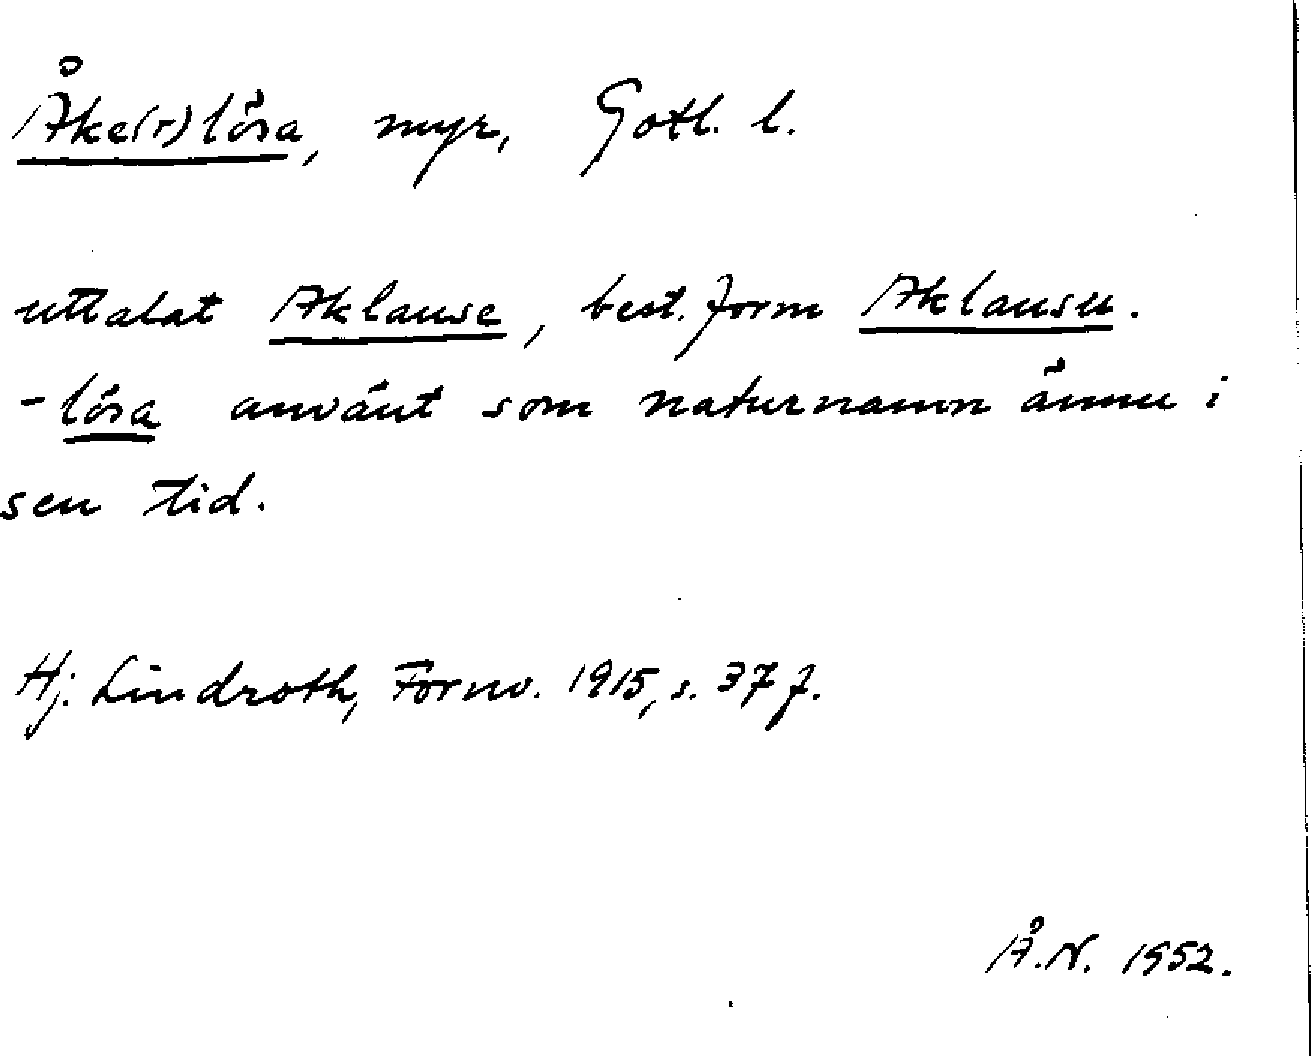 Åke(r)lösa, myr, Gotl. l.
uttalat Aklause, best. form Aklausu.
-lösa använt som naturnamn ännu i
sen tid.
Hj. Lindroth, Fornv. 1915, s. 37 f.
Å.N. 1952.